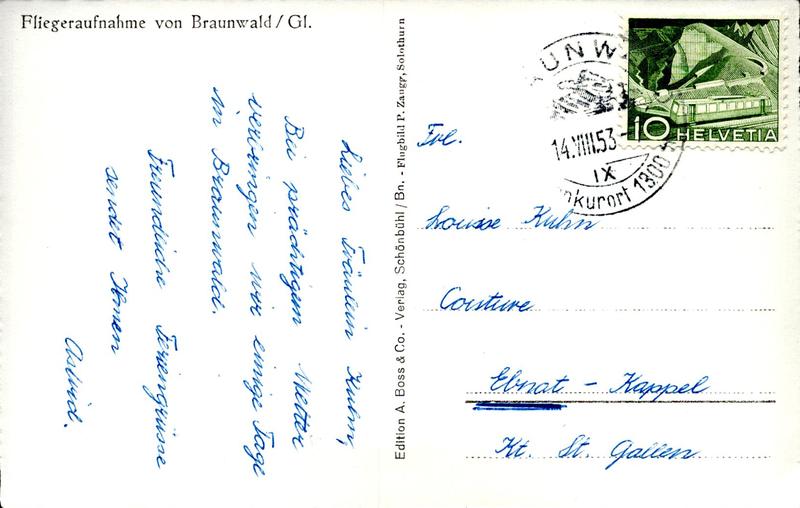 Fliegeraufnahme von Braunwald/Gl.
Liebes Fräulein Kuhn,
Bei prächtigem Wetter
verbringen wir einige Tage
in Braunwald.
Freundliche Feriengrüsse
sendet Ihnen
Astrid.
Edition A. Boss & Co. - Verlag, Schönbühl/Bn. - Flugbild P. Zaugg, Solothurn
14.VIII.53
IX
nkurort 1300
10 HELVETIA
Frl.
Louise Kuhn
Couture
Ebnat - Kappel
Kt. St. Gallen